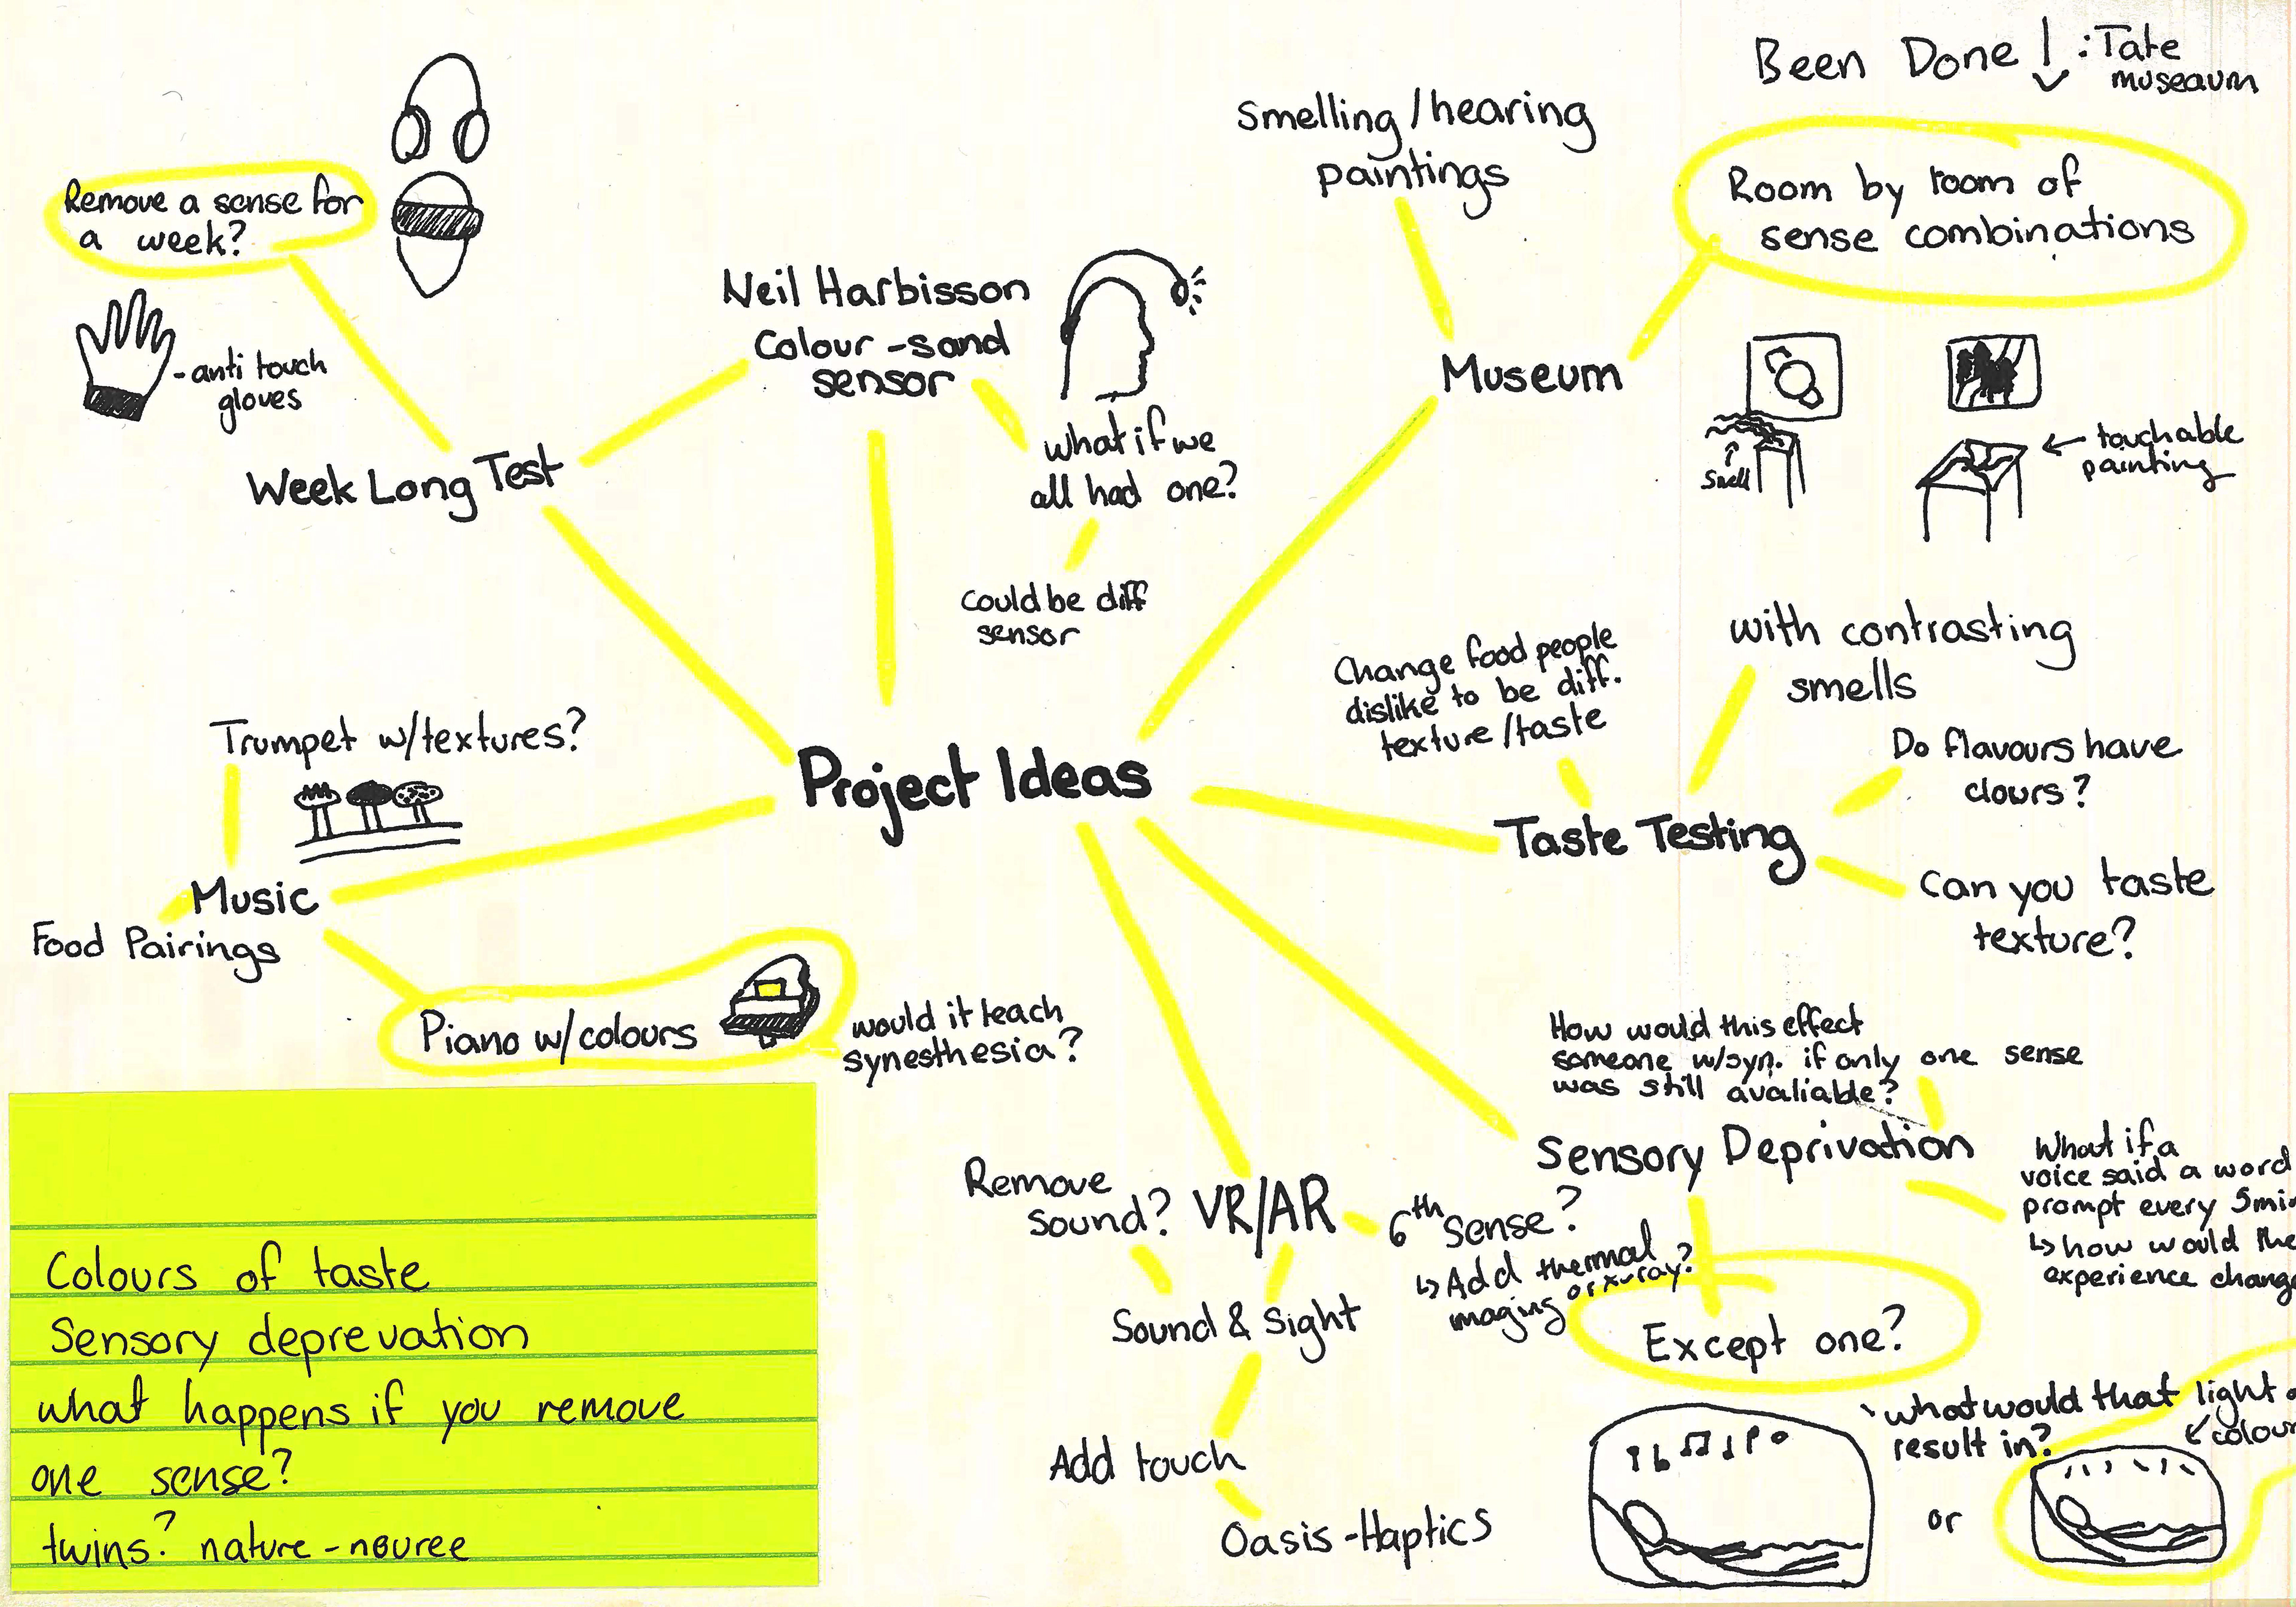 Been Done ! : Tate
museaum
Smelling / hearing
paintings
Room by room of
sense combinations
Remove a sense for
a week?
- anti touch
gloves
Week Long Test
Neil Harbisson
Colour - sand
sensor
what if we
all had one?
could be diff
sensor
Museum
smell
touchable
painting
Change food people
dislike to be diff.
texture / taste
with contrasting
smells
Do flavours have
clours?
Taste Testing
Can you taste
texture?
Project Ideas
Trumpet w/textures?
Music
Food Pairings
Piano w/colours
would it teach
synesthesia?
How would this effect
someone w/syn. if only one sense
was still avaliable?
Sensory Deprivation
What if a
voice said a word
prompt every 5mi
↳ how would the
experience chang
Except one?
what would that light
result in?
colour
or
Remove
sound?
VR/AR
6th sense?
↳ Add thermal
imaging or x-ray?
Sound & Sight
Add touch
Oasis - Haptics
Colours of taste
Sensory deprevation
what happens if you remove
one sense?
twins? nature - nouree